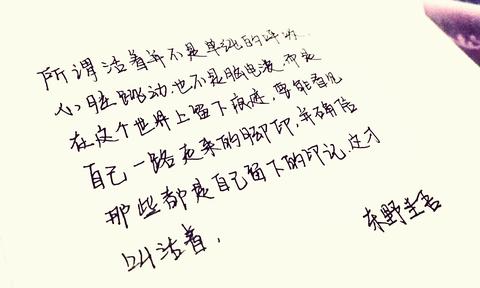 所谓活着并不是单纯的呼吸,
心脏跳动,也不是脑电波,而是
在这个世界上留下痕迹.要能看见
自己一路走来的脚印,并确信
那些都是自己留下的印记,这才
叫活着.
东野圭吾